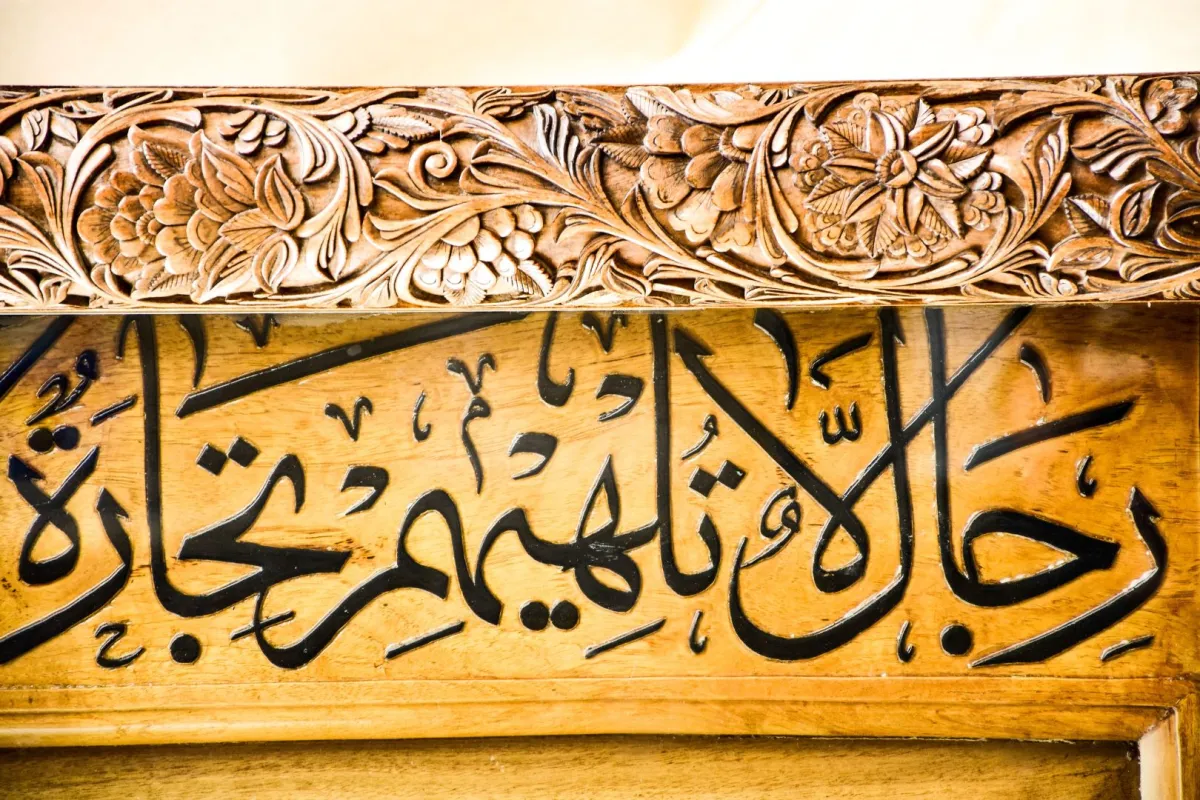 رِجَالٌ لَّا تُلْهِيهِمْ تِجَارَةٌ